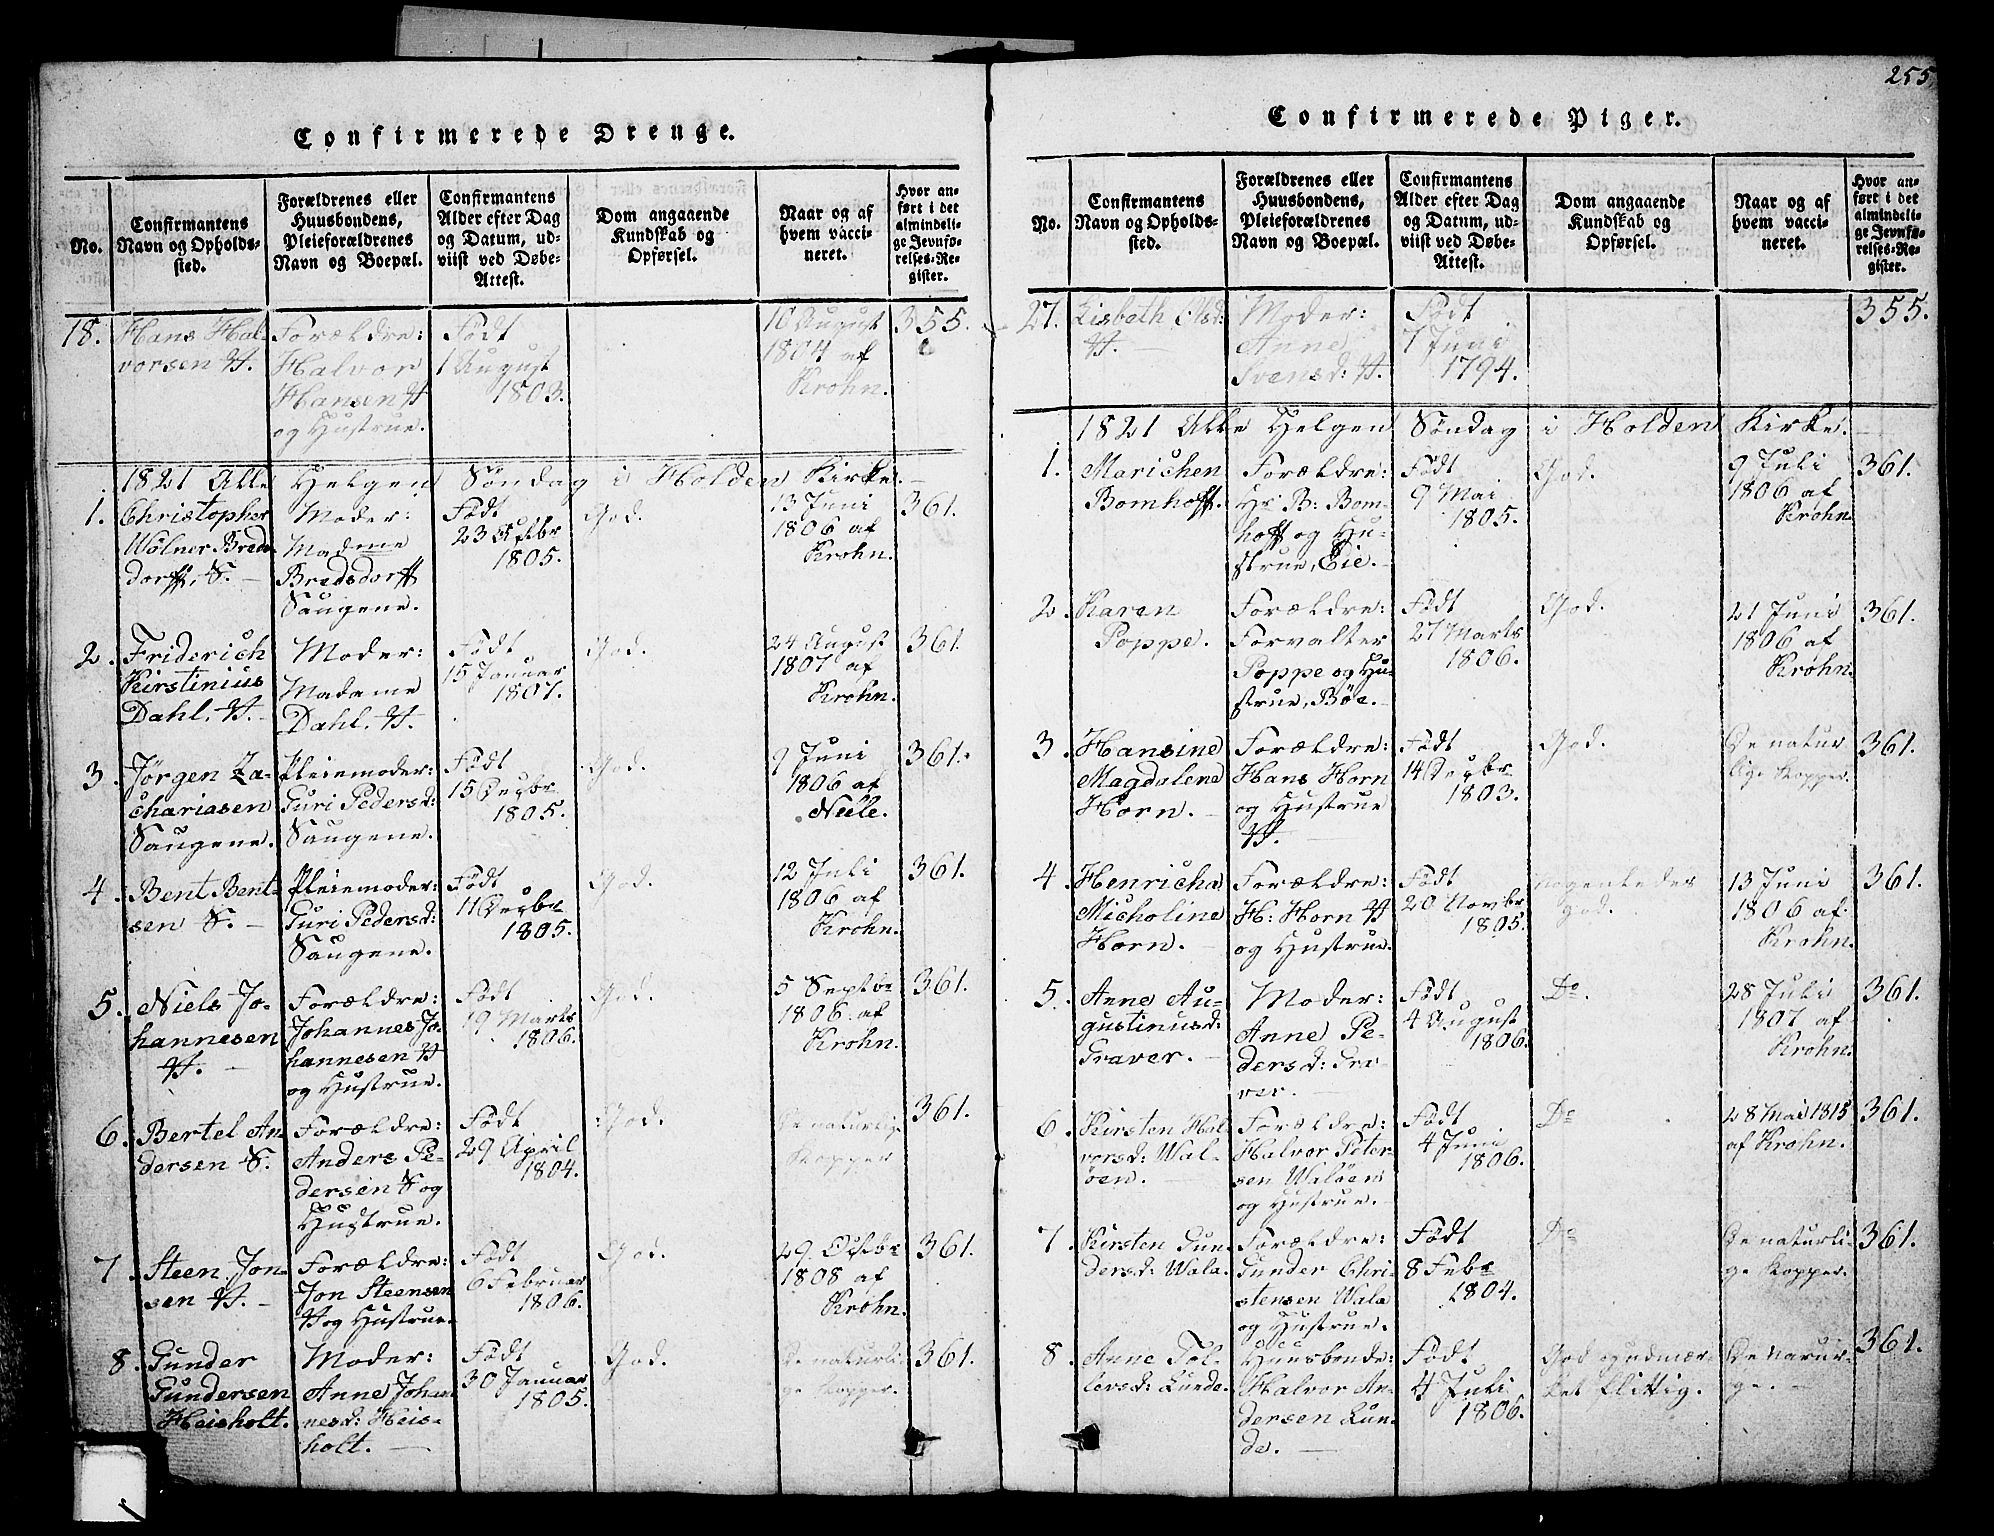 255
Confirmerede Drenge.
No.
Confirmantens
Navn og Opholds-
sted.
Forældrenes eller
Huusbondens,
Pleieforældrenes
Navn og Boepæl.
Confirmantens
Alder efter Dag
og Datum, ud-
viist ved Døbe-
Attest.
Dom angaaende
Kundskab og
Opførsel.
Naar og af
hvem vacci-
neret.
Hvor an-
ført i det
almindeli-
ge Jevnfø-
relses-Re-
gister.
18.
Hans Hal-
vorsen
Forældre:
Halvor
Hansen
og Hustrue.
Født
1 August
1803.
16 August
1804 af
Krohn.
355.
1821 Alle Helgen Søndag i Holden Kirke.
1.
Christopher
Wølner Breds-
dorff, S.
Moder:
Madme
Bredsdorff
Saugene.
Født
23
1805.
God.
13 Juni
1806 af
Krohn.
361.
2.
Friderich
Kirstinius
Dahl.
Moder:
Madame
Dahl.
Født
15 Januar
1807.
God.
24 August
1807 af
Krohn.
361
3.
Jørgen Za-
chariasen
Saugene.
Pleiemoder:
Guri Pedersd:
Saugene.
Født
15 Decbr
1805.
God.
9 Juni
1806 af
Nelle.
361.
4.
Bent Bent-
sen S.
Pleiemoder:
Guri Pedersd:
Saugene.
Født
11 Decbr
1805.
God.
12 Juli
1806 af
Krohn.
361.
5.
Niels Jo-
hannesen
Forældre:
Johannes Jo-
hannesen
og Hustrue.
Født
19 Marts
1806.
God.
5 Septbr
1806. af
Krohn.
361.
6.
Bertel An-
dersen S.
Forældre:
Anders Pe-
dersen S og
Hustrue.
Født
29 April
1804.
God.
De naturlige
Kopper
361.
7.
Steen Jon-
sen
Forældre:
Jon Steensen
og Hustrue.
Født
6 Februar
1806.
God.
29. Octbr
1808 af
Krohn.
361.
8.
Gunder
Gundersen
Heisholt.
Moder:
Anne Johan-
nesd: Heis-
holt.
Født
30 Januar
1805.
God.
De naturli-
ge Kopper.
361.
Confirmerede Piger.
No.
Confirmantens
Navn og Opholds-
sted.
Forældrenes eller
Huusbondens,
Pleieforældrenes
Navn og Boepæl.
Confirmantens
Alder efter Dag
og Datum, ud-
viist ved Døbe-
Attest.
Dom angaaende
Kundskab og
Opførsel.
Naar og af
hvem vacci-
neret.
Hvor an-
ført i det
almindeli-
ge Jevnfø-
relses-Re-
gister.
27.
Lisbeth Olsd:
Moder:
Anne
Svensd:
Født
7 Juni
1794.
355.
1821 Alle Helgen Søndag i Holden Kirke.
1.
Marichen
Bomhoff.
Forældre:
Hr B: Bom-
hoff og Hu-
strue, Eie.
Født
9 Mai
1805.
God.
9 Juli
1806 af
Krohn
361.
2.
Karen
Poppe.
Forældre:
Forvalter
Poppe og Hu-
strue, Bøe.
Født
27 Marts
1806.
God.
21 Juni
1806 af
Krohn.
361.
3.
Hansine
Magdalene
Horn.
Forældre:
Hans Horn
og Hustrue
Født
14 Decbr
1803.
God.
De natur
lige Kopper.
361.
4.
Henricha
Micholine
Horn.
Forældre:
H: Horn
og Hustrue.
Født
20 Novbr
1805.
nogenleder
god.
13 Juni
1806 af
Krohn.
361.
5.
Anne Au-
gustinusd:
Graver.
Moder:
Anne Pe-
dersd: Gra-
ver.
Født
4 August
1806.
Do.
28 Juli
1807 af
Krohn.
361.
6.
Kirsten Hal-
vorsd: Wal-
øen.
Forældre:
Halvor Peter-
sen Waløen
og Hustrue.
Født
4 Juni
1806.
Do
28 Mai 1815
af Krohn.
361.
7.
Kirsten Gun-
dersd: Wala.
Forældre:
Gunder Chri-
stensen Wala
og Hustrue.
Født
8 Febr
1804.
Do
De naturli-
ge Kopper.
361.
8.
Anne Tol-
lersd: Lunde.
Huusbonde:
Halvor An-
dersen Lun-
de.
Født
4 Juli
1806.
God og udmær-
ket flittig.
De narur-
ge.
361.